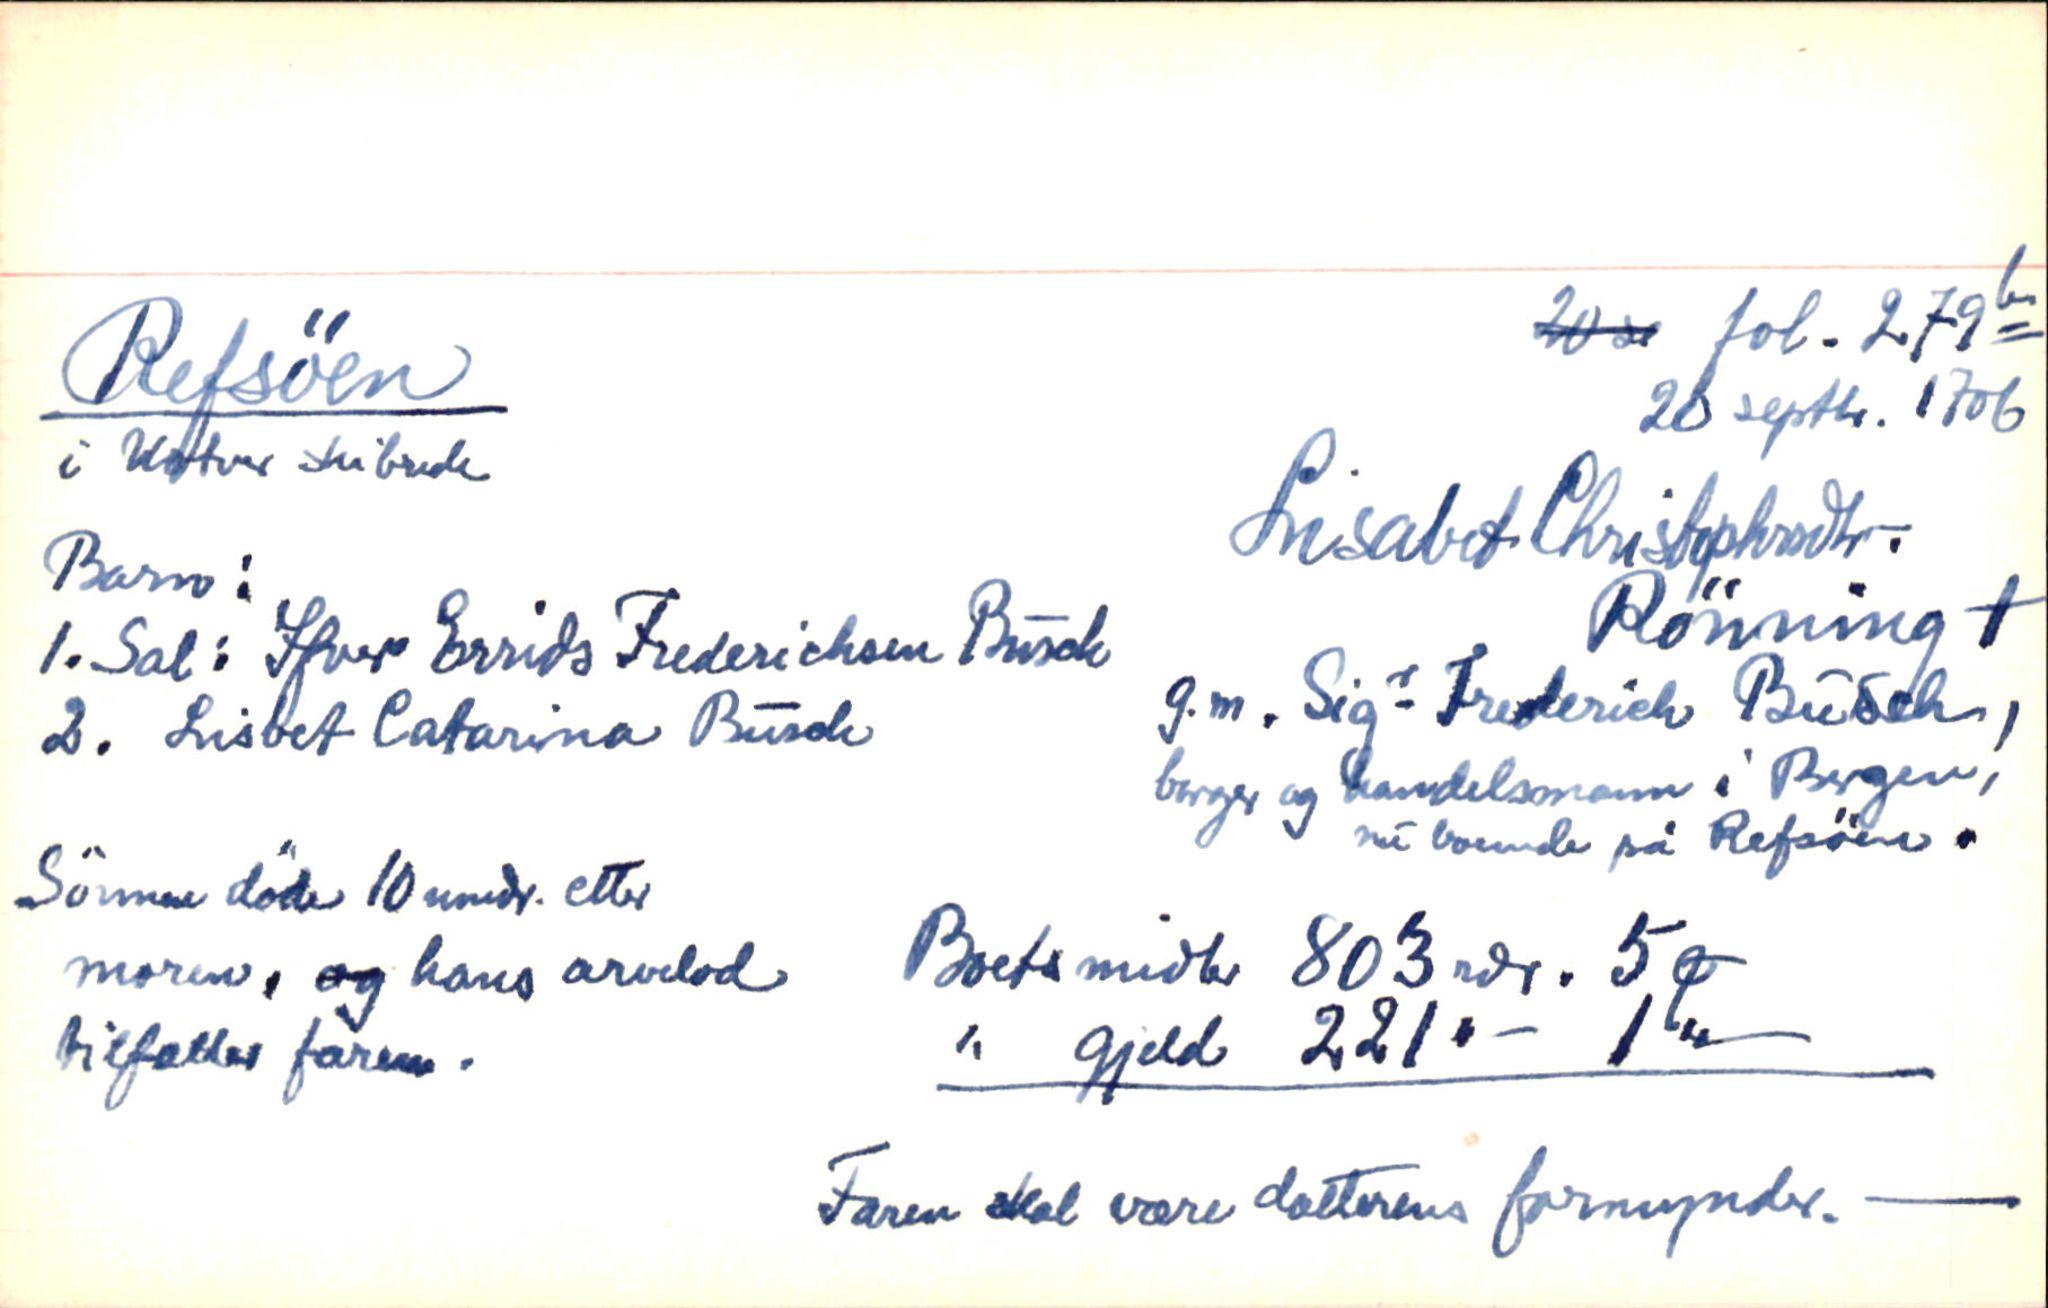 Refsöen
i Utvær skibrede
Barn:
1. Sal: Ifver Errids Frederichsen Büsch
2. Lisbet Catarina Büsch
Sönnen döde 10 mndr. etter
moren, og hans arvelod
tilfaller faren.
fol. 279b
20 septbr. 1706
Lisabet Christophrsdtr.
Rönning †
g.m. Sigr Frederich Büsch,
borger og handelsmann i Bergen,
nu boende på Refsöen.
Boets midler 803 rdr. 5
" gjeld 221 " - 1 "
Faren skal være datterens formynder. —